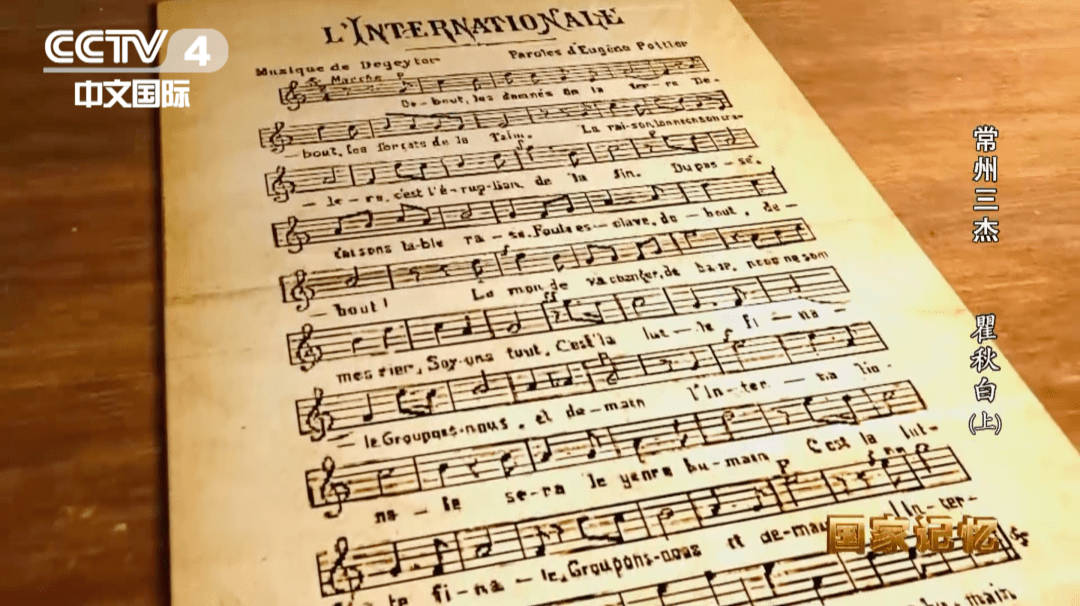 CCTV 4
中文国际
L'INTERNATIONALE
Musique de Degeyter
Paroles d'Eugène Pottier
Marche
p
De-bout, les damnés de la ter-re De-
-bout, les forçats de la faim. La rai-son
-le-re, c'est l'é-rup-tion de la fin. Du pas-sé.
fai sons ta-ble ra-se. Foule es-clave, de-bout, de-
-bout! Le mon-de va changer, de base, nous ne som
ff
mes rien, Soy-ons tout. C'est la lut-te fi-na-
-le. Groupons-nous, et de-main l'In-ter-na tio-
na-le se-ra le genre hu-main C'est la lut-
te fi-na-le. Groupons-nous et de-main l'In-ter-
main
常州三杰
瞿秋白(上)
国家记忆